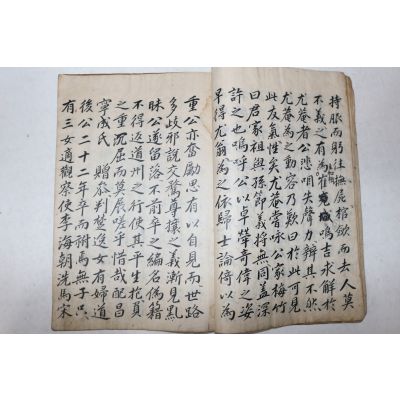 持服而躬往撫屍棺斂而去人莫
不義之有為崔鳴吉永解於
尤菴者公悲咀失聲力辨其不然
尤菴為之動容乃歎曰於此可見
此友氣性矣尤菴嘗詠公家梅竹
曰君家祖與孫節義將無同盖深
許之也嗚呼公以卓犖奇偉之姿
早得尤翁為之依歸士論倚以為
重公亦奮勵思有以自見而世路
多歧邪說交騖尊攘之義漸見點
昧公遂留落不前卒之編名偽籍
不得返道州之行使其平生抱負
之重沉屈而莫展嗟乎惜哉配昌
寧成氏 贈參判楚逸女有婦道
後公二十二年卒而祔焉無子只
有三女適觀察使李海朝洗馬宋